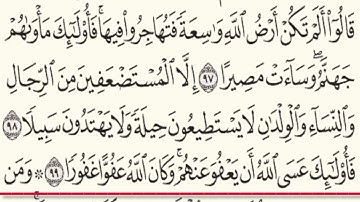 قَالُوٓا۟ أَلَمْ تَكُنْ أَرْضُ ٱللَّهِ وَٰسِعَةً فَتُهَاجِرُوا۟ فِيهَا ۚ فَأُو۟لَٰٓئِكَ مَأْوَىٰهُمْ
جَهَنَّمُ ۖ وَسَآءَتْ مَصِيرًا ٩٧ إِلَّا ٱلْمُسْتَضْعَفِينَ مِنَ ٱلرِّجَالِ
وَٱلنِّسَآءِ وَٱلْوِلْدَٰنِ لَا يَسْتَطِيعُونَ حِيلَةً وَلَا يَهْتَدُونَ سَبِيلًا ٩٨
فَأُو۟لَٰٓئِكَ عَسَى ٱللَّهُ أَن يَعْفُوَ عَنْهُمْ ۚ وَكَانَ ٱللَّهُ عَفُوًّا غَفُورًا ٩٩ ۞ وَمَن